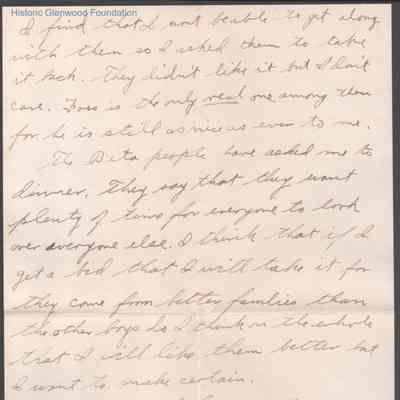 Historic Glenwood Foundation
I find that I wont be able to get along
with them so I asked them to take
it back. They didn't like it but I don't
care. Foss is the only real one among them
for he is still as nice as ever to me.
The Beta people have asked me to
dinner. They say that they want
plenty of time for everyone to look
over everyone else. I think that if I
get a bid that I will take it for
they come from better families than
the other boys do. I think on the whole
that I will like them better but
I want to make certain.